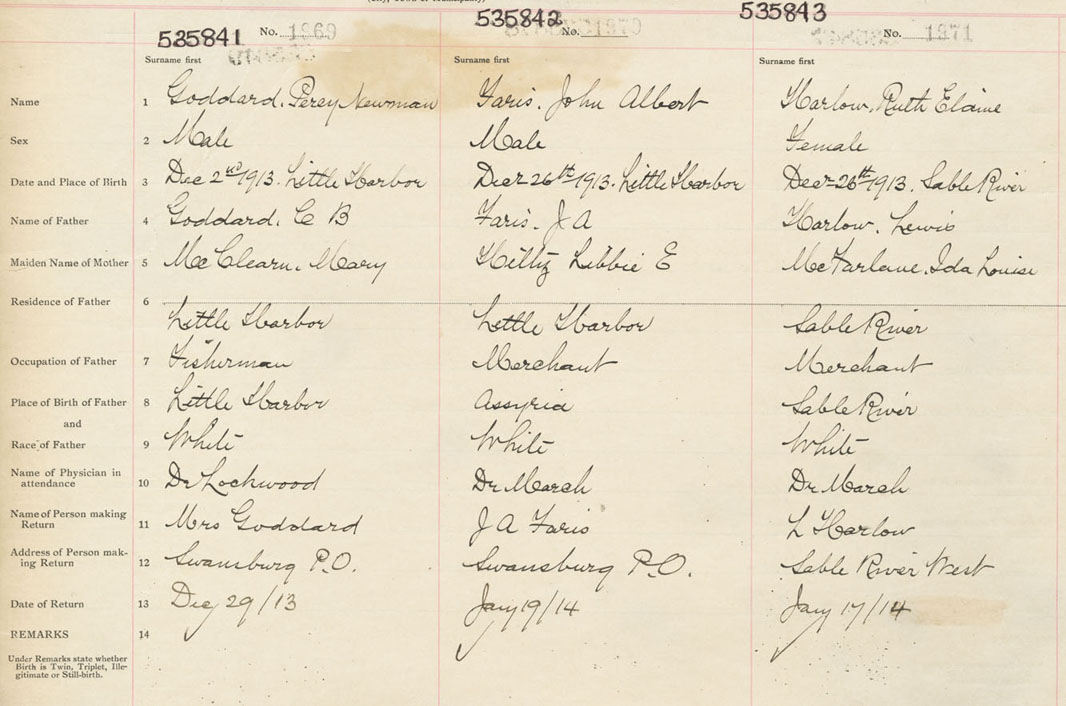 535841 No. 1869 535842 No. 1870 535843 No. 1871
Surname first Surname first Surname first
Name 1 Goddard. Percy Newman Faris. John Albert Harlow, Ruth Elaine
Sex 2 Male Male Female
Date and Place of Birth 3 Dec 2nd 1913. Little Harbor Decr 26th 1913. Little Harbor Decr 26th 1913. Sable River
Name of Father 4 Goddard. C B Faris. J A Harlow. Lewis
Maiden Name of Mother 5 McClearn. Mary Hiltz Libbie E McFarlane. Ida Louise
Residence of Father 6
Little Harbor Little Harbor Sable River
Occupation of Father 7 Fisherman Merchant Merchant
Place of Birth of Father 8 Little Harbor Assyria Sable River
and
Race of Father 9 White White White
Name of Physician in
attendance 10 Dr Lockwood Dr March Dr March
Name of Person making
Return 11 Mrs Goddard J A Faris L Harlow
Address of Person mak-
ing Return 12 Swansburg P.O. Swansburg P.O. Sable River West
Date of Return 13 Dec 29/13 Jany 19/14 Jany 17/14
REMARKS 14
Under Remarks state whether
Birth is Twin, Triplet, Ille-
gitimate or Still-birth.